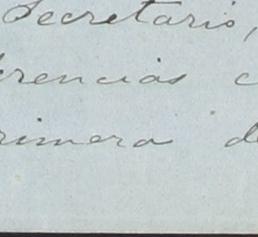 Secretario,
erencias c
rimera de